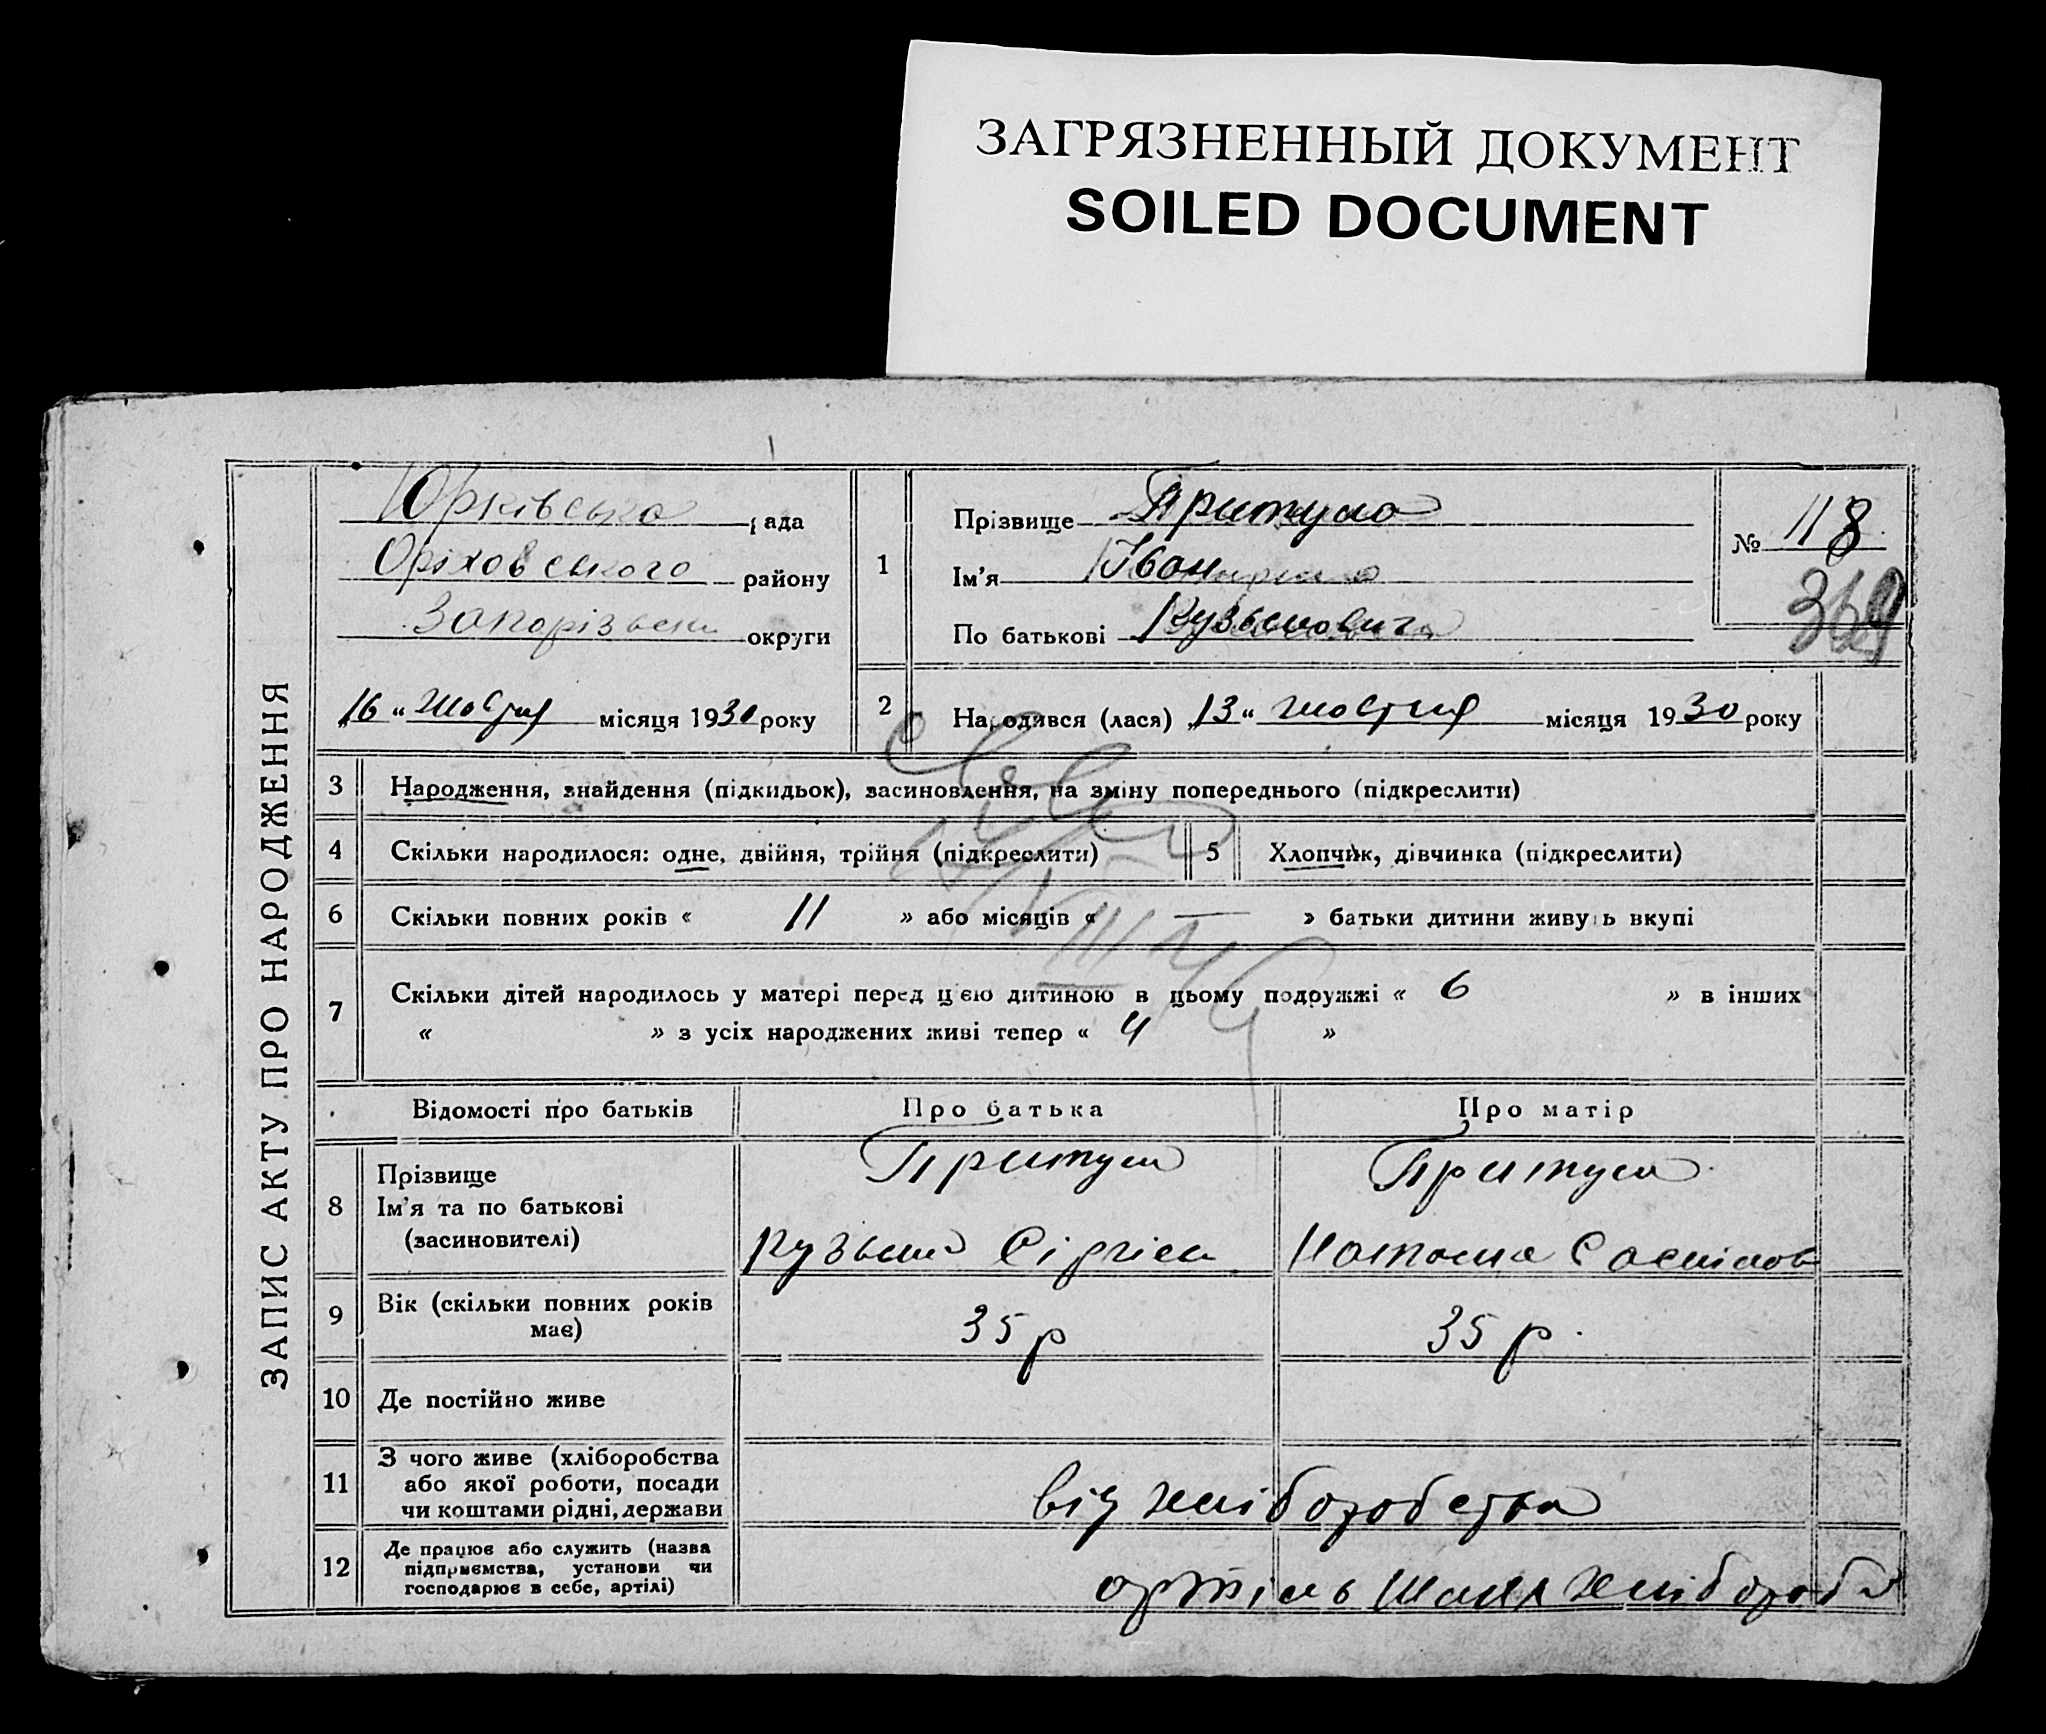 ЗАГРЯЗНЕННЫЙ ДОКУМЕНТ
SOILED DOCUMENT
ЗАПИС АКТУ ПРО НАРОДЖЕННЯ
Юрківська рада
Оріховського району
Запорізьки округи
„16“ Жовтня місяця 1930 року
1
Прізвище Притула
Ім'я Іван
По батькові Кузьмович
№ 118
369
2 Народився (лася) „13“ жовтня місяця 1930 року
3 Народження, знайдення (підкидьок), засиновлення, на зміну попереднього (підкреслити)
4 Скільки народилося: одне, двійня, трійня (підкреслити) 5 Хлопчик, дівчинка (підкреслити)
6 Скільки повних років « 11 » або місяців « — » батьки дитини живуть вкупі
7 Скільки дітей народилось у матері перед цією дитиною в цьому подружжі « 6 » в інших
« » з усіх народжених живі тепер « 4 »
Відомості про батьків Про батька Про матір
8 Прізвище
Ім'я та по батькові
(засиновителі)
Притула
Кузьма Сіргієв
Притула
Наталя
9 Вік (скільки повних років має) 35 р 35 р.
10 Де постійно живе
11 З чого живе (хліборобства
або якої роботи, посади
чи коштами рідні, держави
від хліборобства
12 Де працює або служить (назва
підприємства, установи чи
господарює в себе, артілі)
артіль Шлях хлібороба